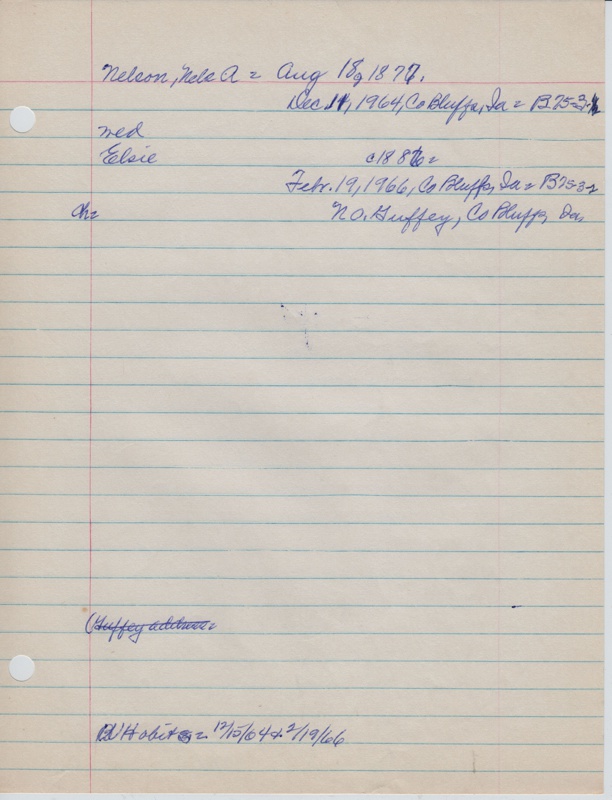 Nelson, Nels A = Aug 18, 1877.
Dec 11, 1964, Co Bluffs, Ia = B 75-3-
wed
Elsie c 1886 =
Febr. 19, 1966, Co Bluffs, Ia = B 75-3-2
Ch = N.O. Guffey, Co Bluffs, Ia.
(Guffey
= 12/15/64 & 2/19/66